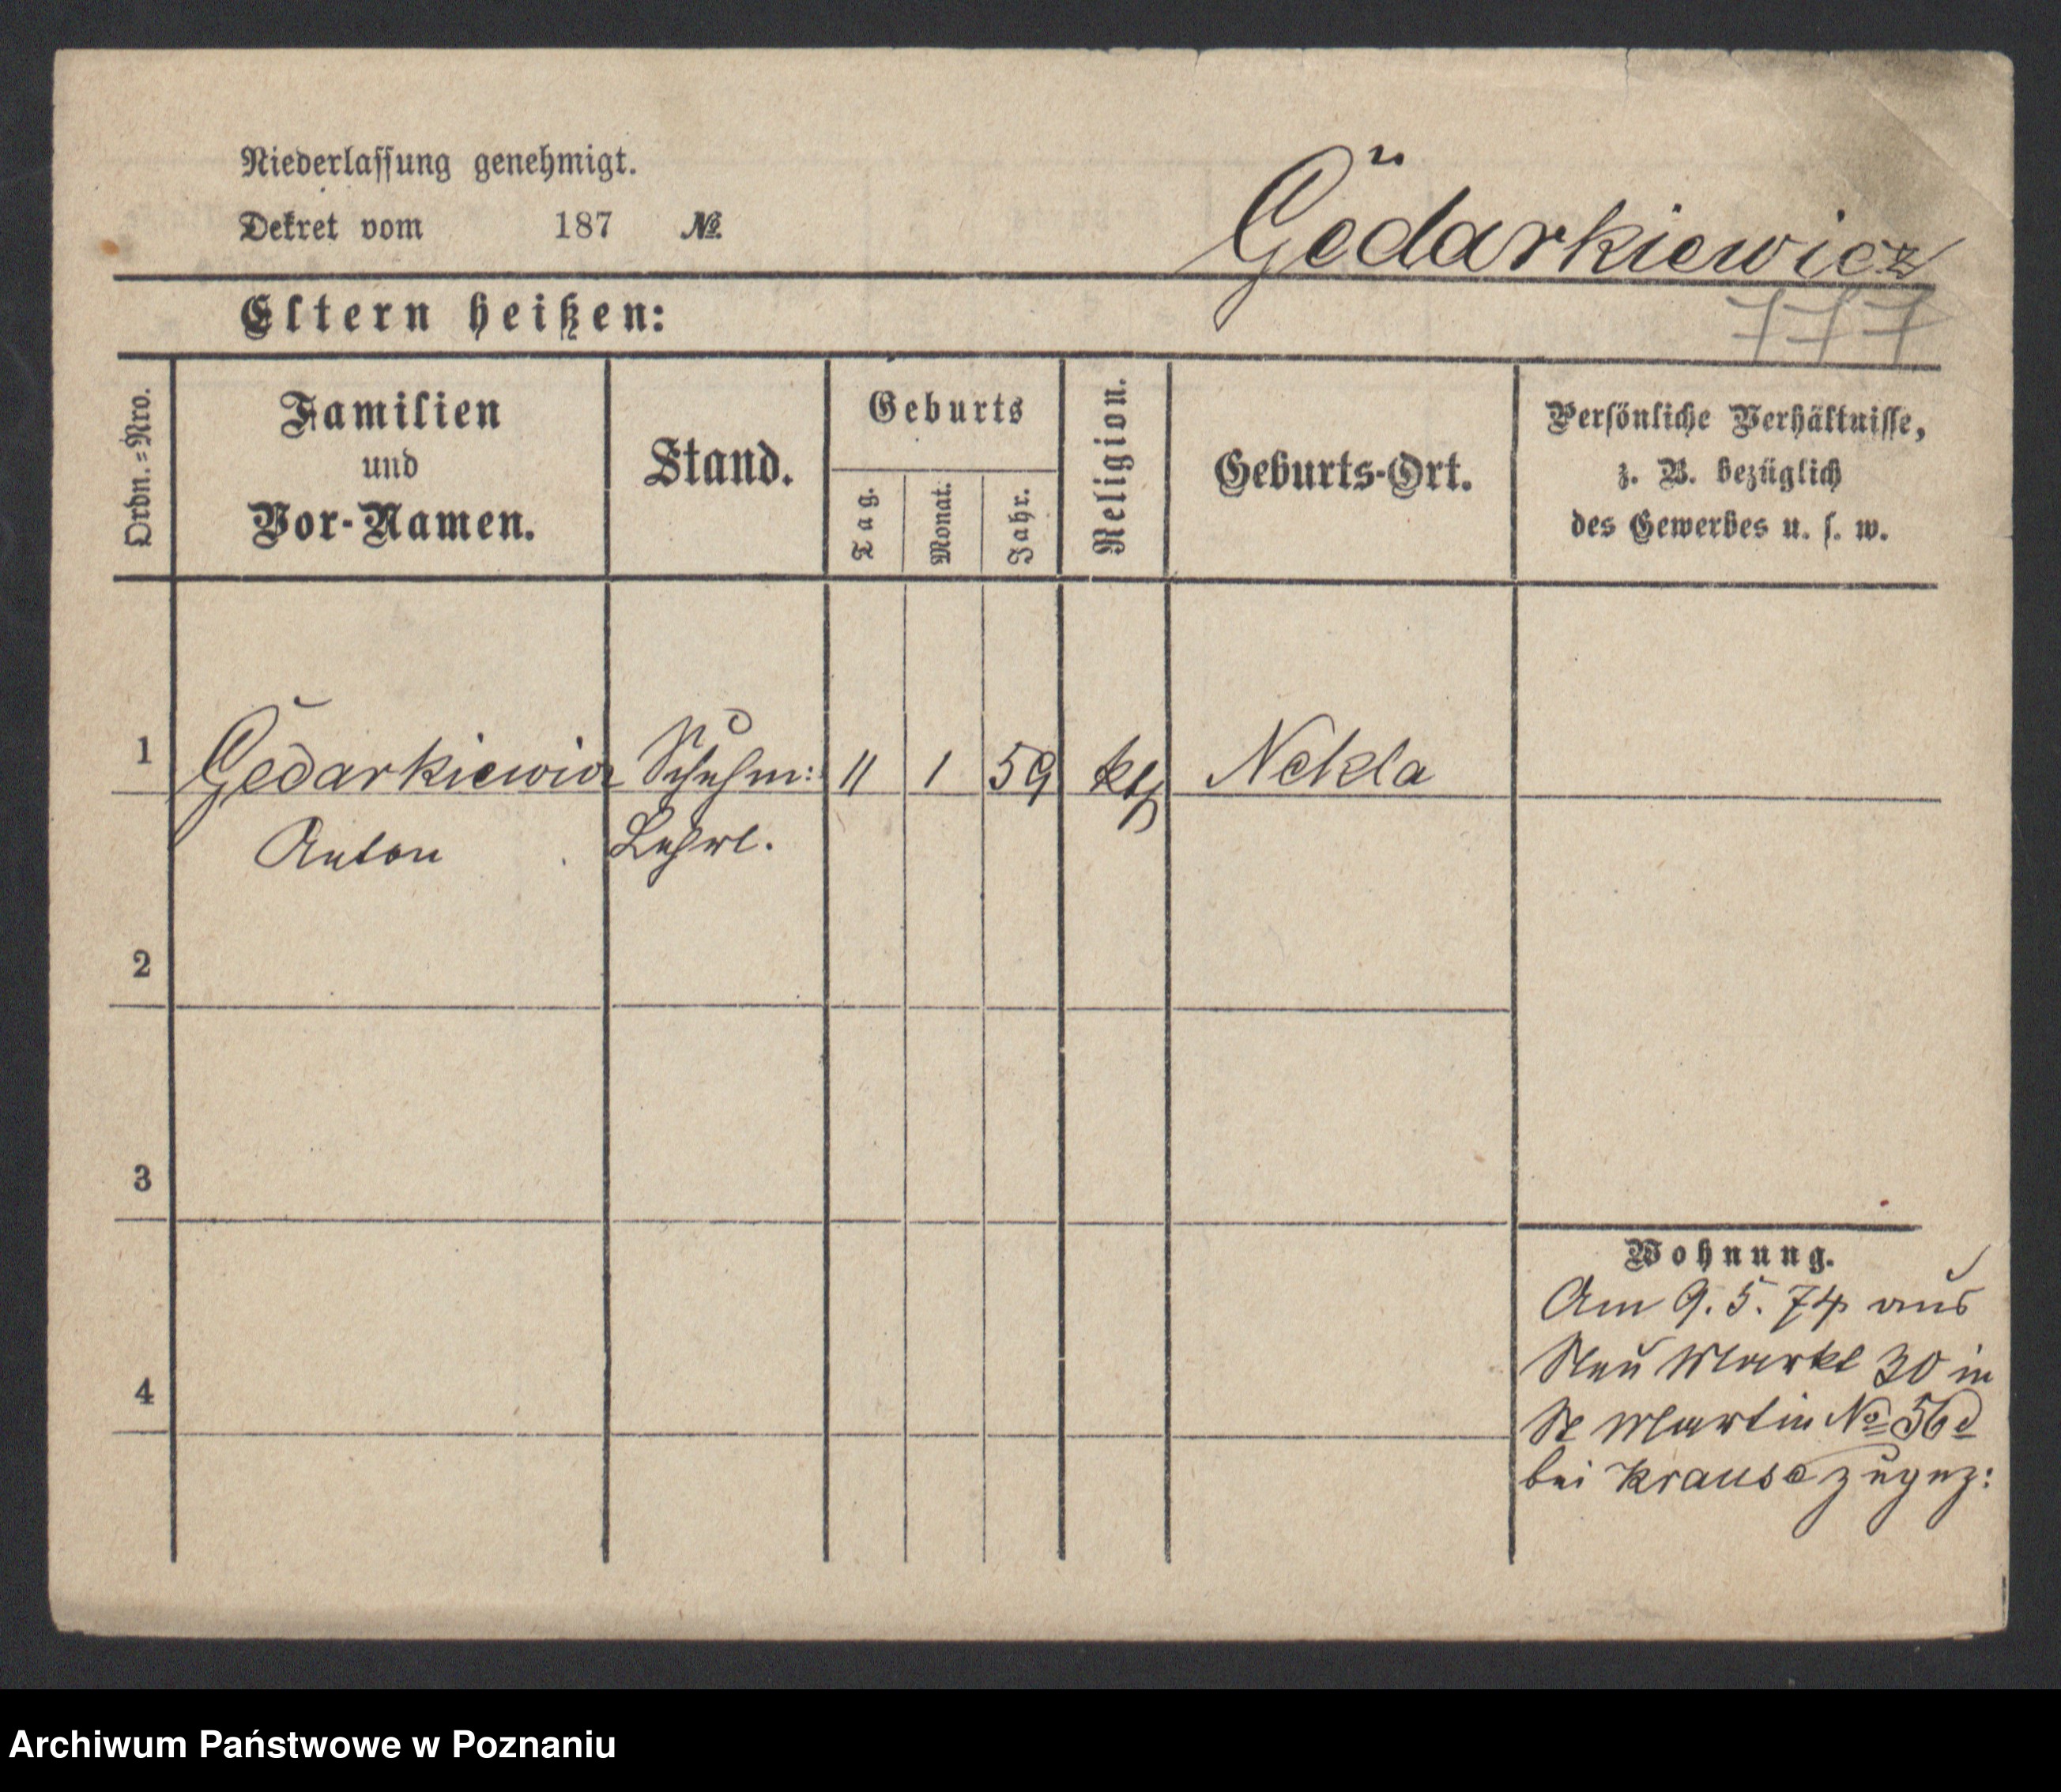 Niederlassung genehmigt.
Dekret vom 187 №
Gedarkiewicz
777
Eltern heißen:
Ordn.=Nro.
Familien
und
Vor-Namen.
Stand.
Geburts
Tag.
Monat.
Jahr.
Religion.
Geburts-Ort.
Persönliche Verhältnisse,
z. B. bezüglich
des Gewerbes u. s. w.
1 Gedarkiewicz Schuhm: 11 1 59 kth Nekla
Anton Lehrl.
2
3
4
Wohnung.
Am 9. 5. 74 aus
Neu Markt 30 in
St Martin No 56
bei Krause zugez:
Archiwum Państwowe w Poznaniu